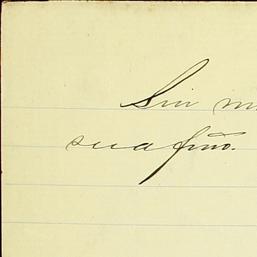 Sin m
su afmo.